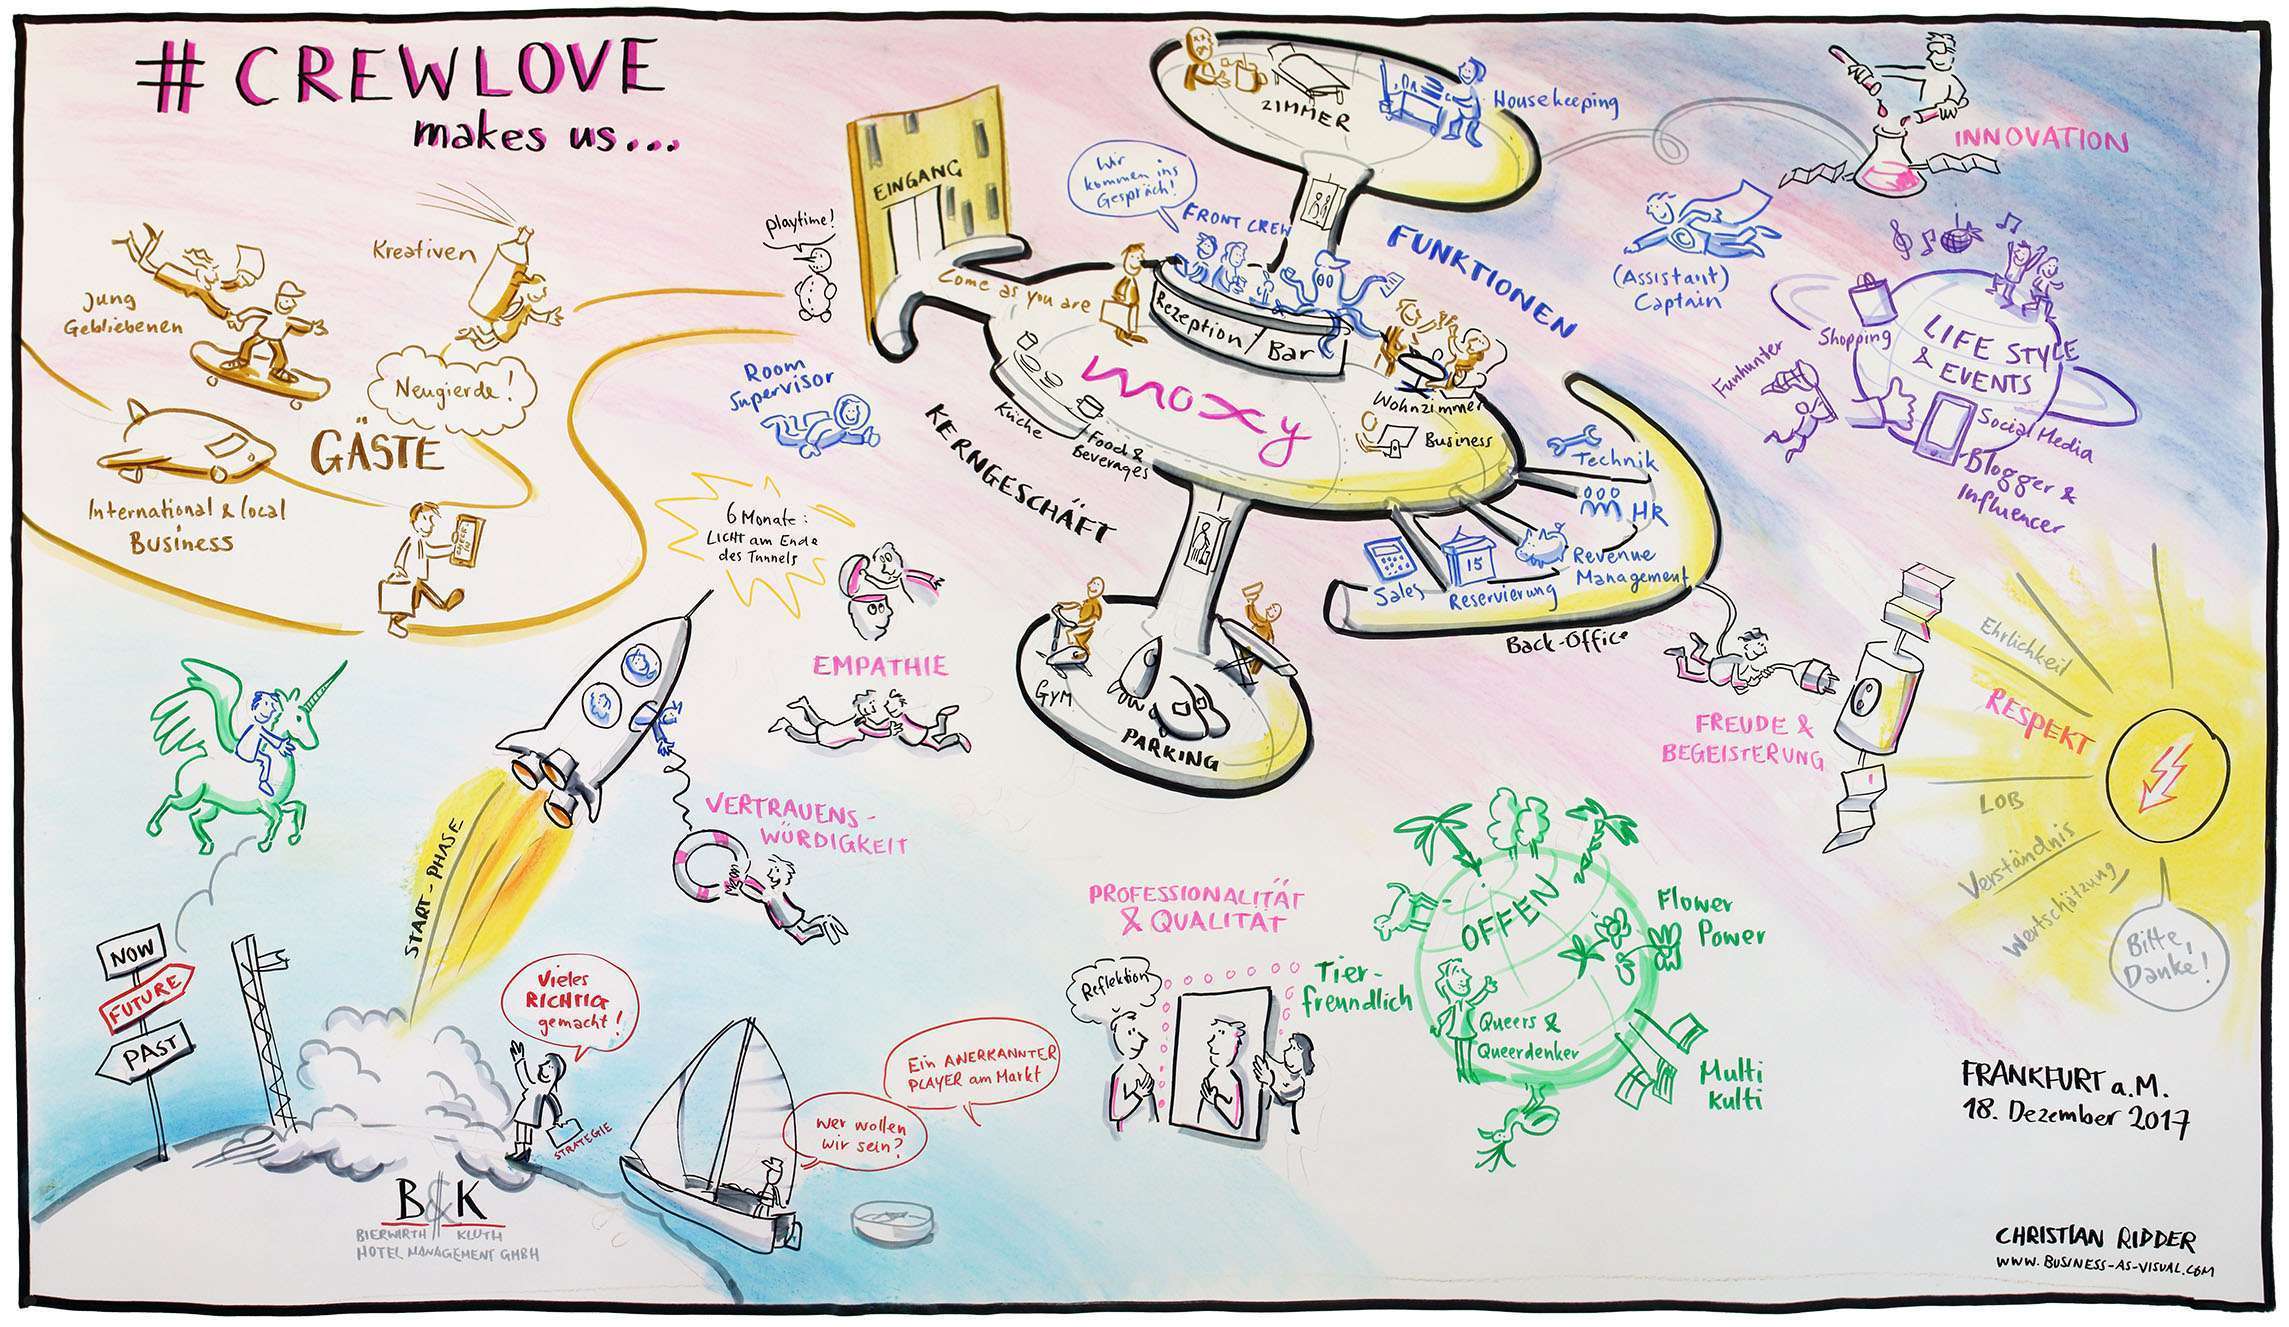 #CREWLOVE
makes us...
Jung
Gebliebenen
Kreativen
Neugierde!
GÄSTE
International & local
Business
CHECK IN
playtime!
Room
Supervisor
EINGANG
Come as you are
Wir
kommen ins
Gespräch!
FRONT CREW
Rezeption/Bar
ZIMMER
Housekeeping
FUNKTIONEN
moxy
Küche
Food &
Beverages
Wohnzimmer
Business
KERNGESCHÄFT
Technik
HR
Revenue
Management
15
Reservierung
Sales
Back-Office
GYM
PARKING
INNOVATION
(Assistant)
Captain
C
Shopping
Funhunter
LIFE STYLE
& EVENTS
Social Media
Blogger &
Influencer
6 Monate:
LICHT am Ende
des Tunnels
EMPATHIE
START-PHASE
VERTRAUENS-
WÜRDIGKEIT
FREUDE &
BEGEISTERUNG
Ehrlichkeit
RESPEKT
LOB
Verständnis
Wertschätzung
Bitte,
Danke!
NOW
FUTURE
PAST
Vieles
RICHTIG
gemacht!
STRATEGIE
Wer wollen
wir sein?
Ein ANERKANNTER
PLAYER am Markt
PROFESSIONALITÄT
& QUALITÄT
Reflektion
OFFEN
Flower
Power
Tier-
freundlich
Queers &
Queerdenker
Multi
Kulti
B&K
BIERWIRTH KLUTH
HOTEL MANAGEMENT GMBH
FRANKFURT a.M.
18. Dezember 2017
CHRISTIAN RIDDER
WWW.BUSINESS-AS-VISUAL.COM